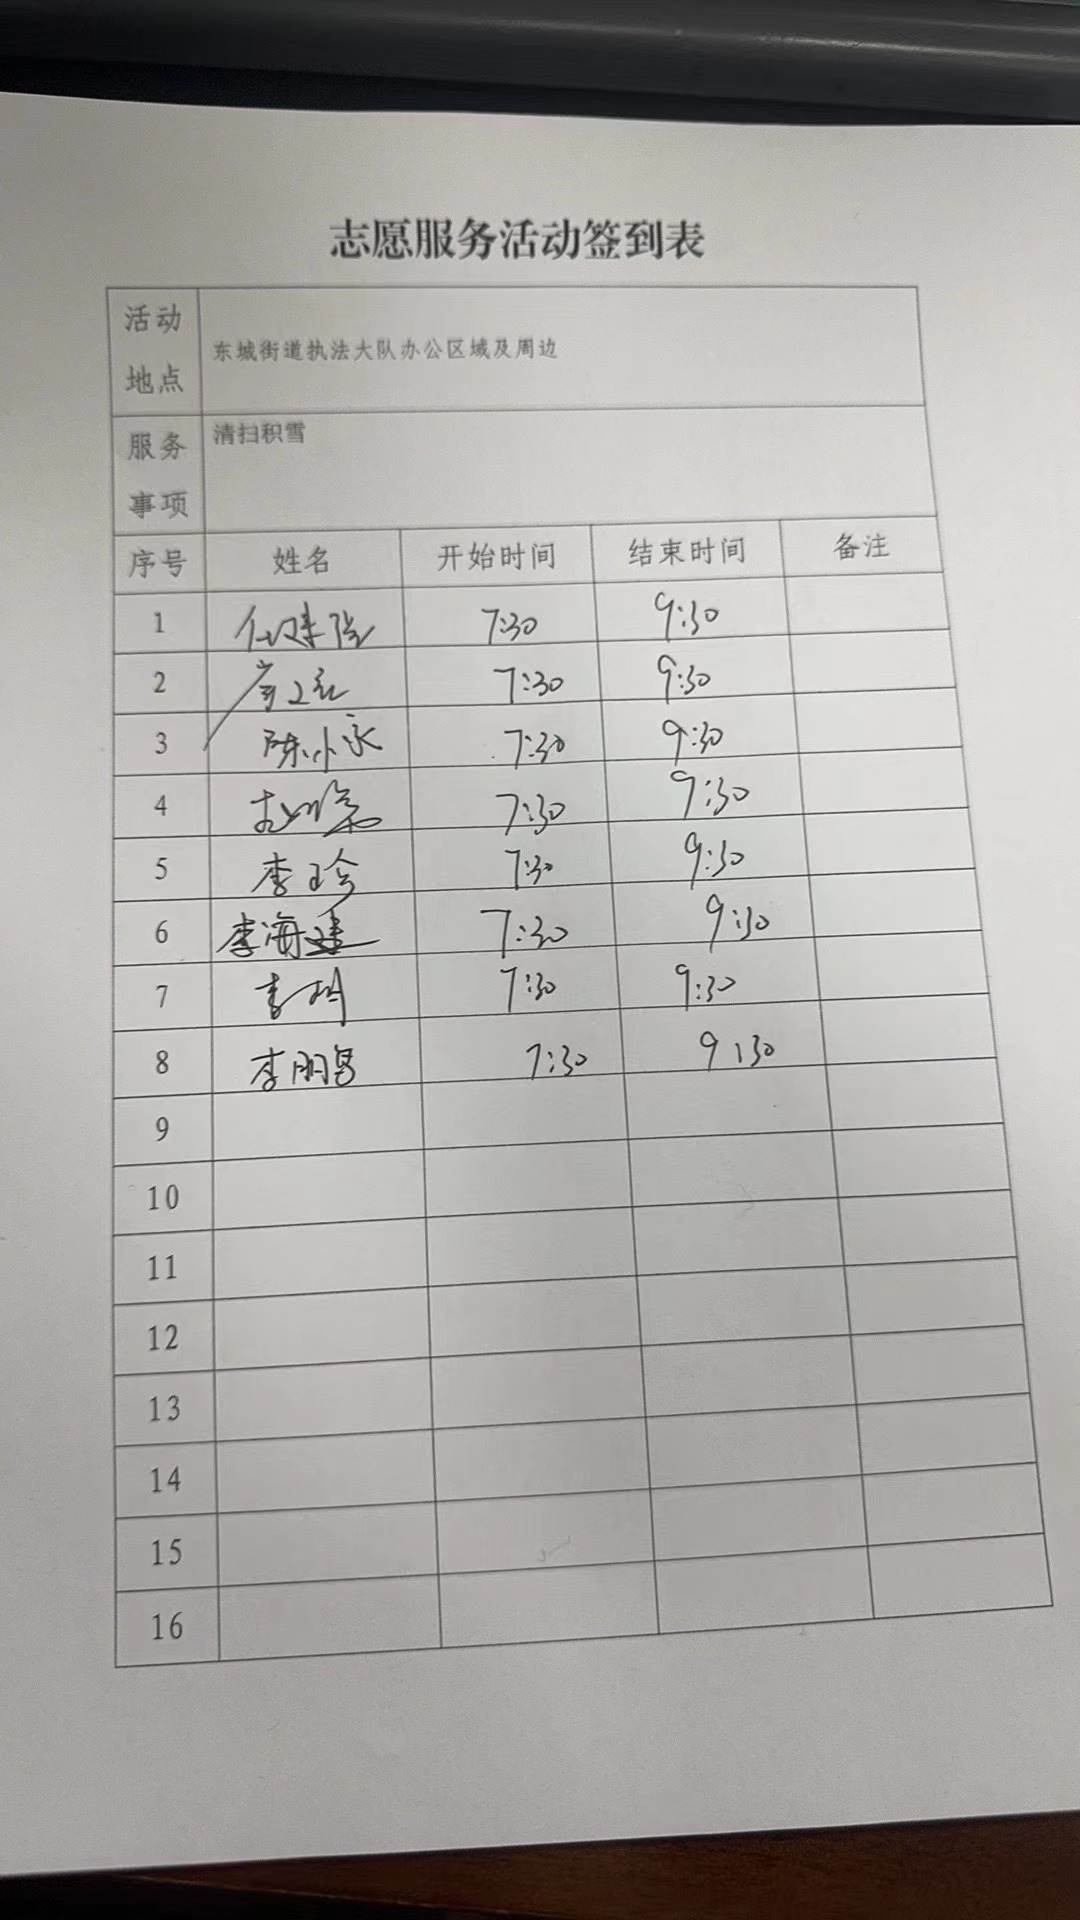 志愿服务活动签到表
活动地点 东城街道执法大队办公区域及周边
服务事项 清扫积雪
序号 姓名 开始时间 结束时间 备注
1 7:30 9:30
2 7:30 9:30
3 陈小永 7:30 9:30
4 7:30 9:30
5 李珍 7:30 9:30
6 李海建 7:30 9:30
7 7:30 9:30
8 李朋 7:30 9:30
9
10
11
12
13
14
15
16